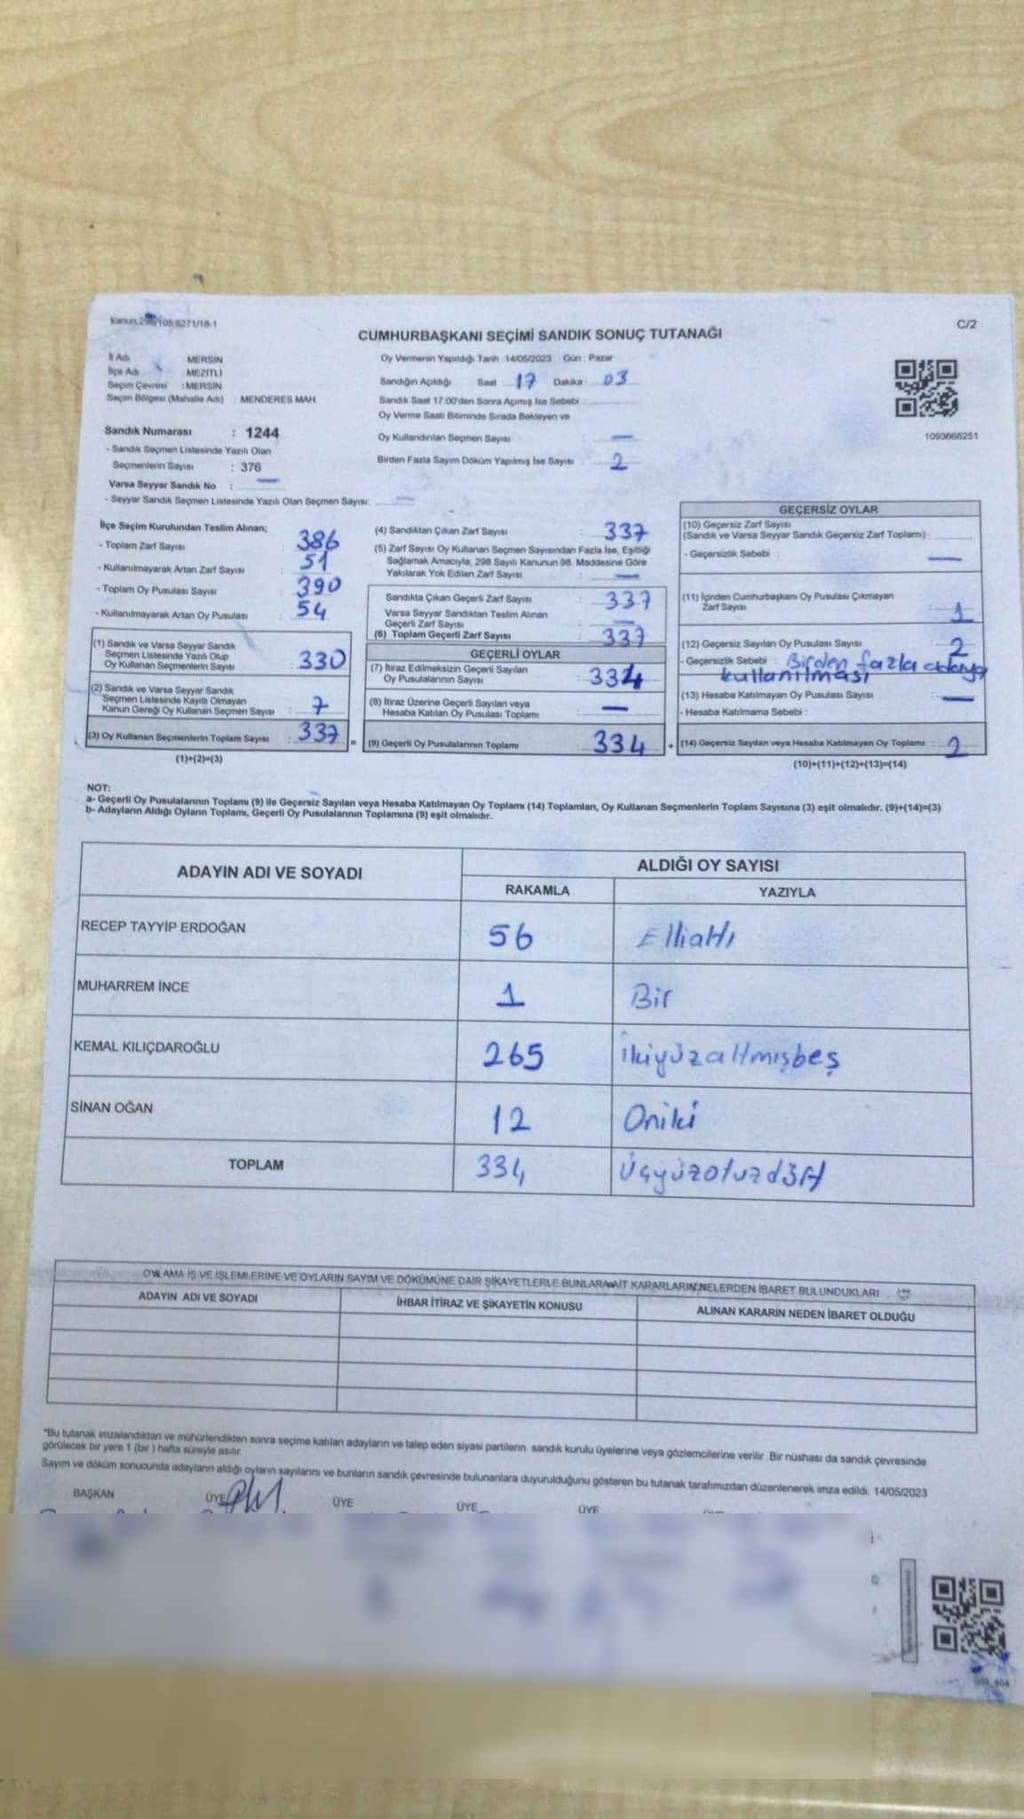 C/2
CUMHURBAŞKANI SEÇİMİ SANDIK SONUÇ TUTANAĞI
İl Adı MERSİN
İlçe Adı MEZİTLİ
Seçim Çevresi : MERSİN
Seçim Bölgesi (Mahalle Adı) : MENDERES MAH.
Oy Vermenin Yapıldığı Tarih :14/05/2023 Gün : Pazar
Sandığın Açıldığı Saat 17 Dakika : 03
Sandık Saat 17:00'den Sonra Açılmış İse Sebebi :
Oy Verme Saati Bitiminde Sırada Bekleyen ve
Oy Kullandırılan Seçmen Sayısı —
Birden Fazla Sayım Döküm Yapılmış İse Sayısı : 2
1093666251
Sandık Numarası : 1244
- Sandık Seçmen Listesinde Yazılı Olan
Seçmenlerin Sayısı : 376
Varsa Seyyar Sandık No : —
- Seyyar Sandık Seçmen Listesinde Yazılı Olan Seçmen Sayısı: —
İlçe Seçim Kurulundan Teslim Alınan;
- Toplam Zarf Sayısı 386
- Kullanılmayarak Artan Zarf Sayısı 51
- Toplam Oy Pusulası Sayısı 390
- Kullanılmayarak Artan Oy Pusulası 54
(1) Sandık ve Varsa Seyyar Sandık
Seçmen Listesinde Yazılı Olup
Oy Kullanan Seçmenlerin Sayısı : 330
(2) Sandık ve Varsa Seyyar Sandık
Seçmen Listesinde Kayıtlı Olmayan
Kanun Gereği Oy Kullanan Seçmen Sayısı : 7
(3) Oy Kullanan Seçmenlerin Toplam Sayısı : 337
(1)+(2)=(3)
(4) Sandıktan Çıkan Zarf Sayısı 337
(5) Zarf Sayısı Oy Kullanan Seçmen Sayısından Fazla İse, Eşitliği
Sağlamak Amacıyla, 298 Sayılı Kanunun 98. Maddesine Göre
Yakılarak Yok Edilen Zarf Sayısı : —
Sandıkta Çıkan Geçerli Zarf Sayısı : 337
Varsa Seyyar Sandıktan Teslim Alınan
Geçerli Zarf Sayısı : —
(6) Toplam Geçerli Zarf Sayısı : 337
GEÇERLİ OYLAR
(7) İtiraz Edilmeksizin Geçerli Sayılan
Oy Pusulalarının Sayısı : 334
(8) İtiraz Üzerine Geçerli Sayılan veya
Hesaba Katılan Oy Pusulası Toplamı : —
(9) Geçerli Oy Pusulalarının Toplamı : 334
GEÇERSİZ OYLAR
(10) Geçersiz Zarf Sayısı
(Sandık ve Varsa Seyyar Sandık Geçersiz Zarf Toplamı) :
- Geçersizlik Sebebi : —
(11) İçinden Cumhurbaşkanı Oy Pusulası Çıkmayan
Zarf Sayısı : 1
(12) Geçersiz Sayılan Oy Pusulası Sayısı : 2
- Geçersizlik Sebebi : Birden fazla
kullanılması
(13) Hesaba Katılmayan Oy Pusulası Sayısı —
- Hesaba Katılmama Sebebi :
(14) Geçersiz Sayılan veya Hesaba Katılmayan Oy Toplamı :
(10)+(11)+(12)+(13)=(14)
NOT:
a- Geçerli Oy Pusulalarının Toplamı (9) ile Geçersiz Sayılan veya Hesaba Katılmayan Oy Toplamı (14) Toplamları, Oy Kullanan Seçmenlerin Toplam Sayısına (3) eşit olmalıdır. (9)+(14)=(3)
b- Adayların Aldığı Oyların Toplamı, Geçerli Oy Pusulalarının Toplamına (9) eşit olmalıdır.
ADAYIN ADI VE SOYADI ALDIĞI OY SAYISI
RAKAMLA YAZIYLA
RECEP TAYYİP ERDOĞAN 56 Elliattı
MUHARREM İNCE 1 Bir
KEMAL KILIÇDAROĞLU 265 İkiyüzaltmışbeş
SİNAN OĞAN 12 Oniki
TOPLAM 334 Üçyüzotuzdört
OYLAMA İŞ VE İŞLEMLERİNE VE OYLARIN SAYIM VE DÖKÜMÜNE DAİR ŞİKAYETLERLE BUNLARA AİT KARARLARIN NELERDEN İBARET BULUNDUKLARI
ADAYIN ADI VE SOYADI İHBAR İTİRAZ VE ŞİKAYETİN KONUSU ALINAN KARARIN NEDEN İBARET OLDUĞU
*Bu tutanak imzalandıktan ve mühürlendikten sonra seçime katılan adayların ve talep eden siyasi partilerin sandık kurulu üyelerine veya gözlemcilerine verilir. Bir nüshası da sandık çevresinde
görülecek bir yere 1 (bir) hafta süreyle asılır.
Sayım ve döküm sonucunda adayların aldığı oyların sayılarını ve bunların sandık çevresinde bulunanlara duyurulduğunu gösteren bu tutanak tarafımızdan düzenlenerek imza edildi. 14/05/2023
BAŞKAN ÜYE ÜYE ÜYE ÜYE